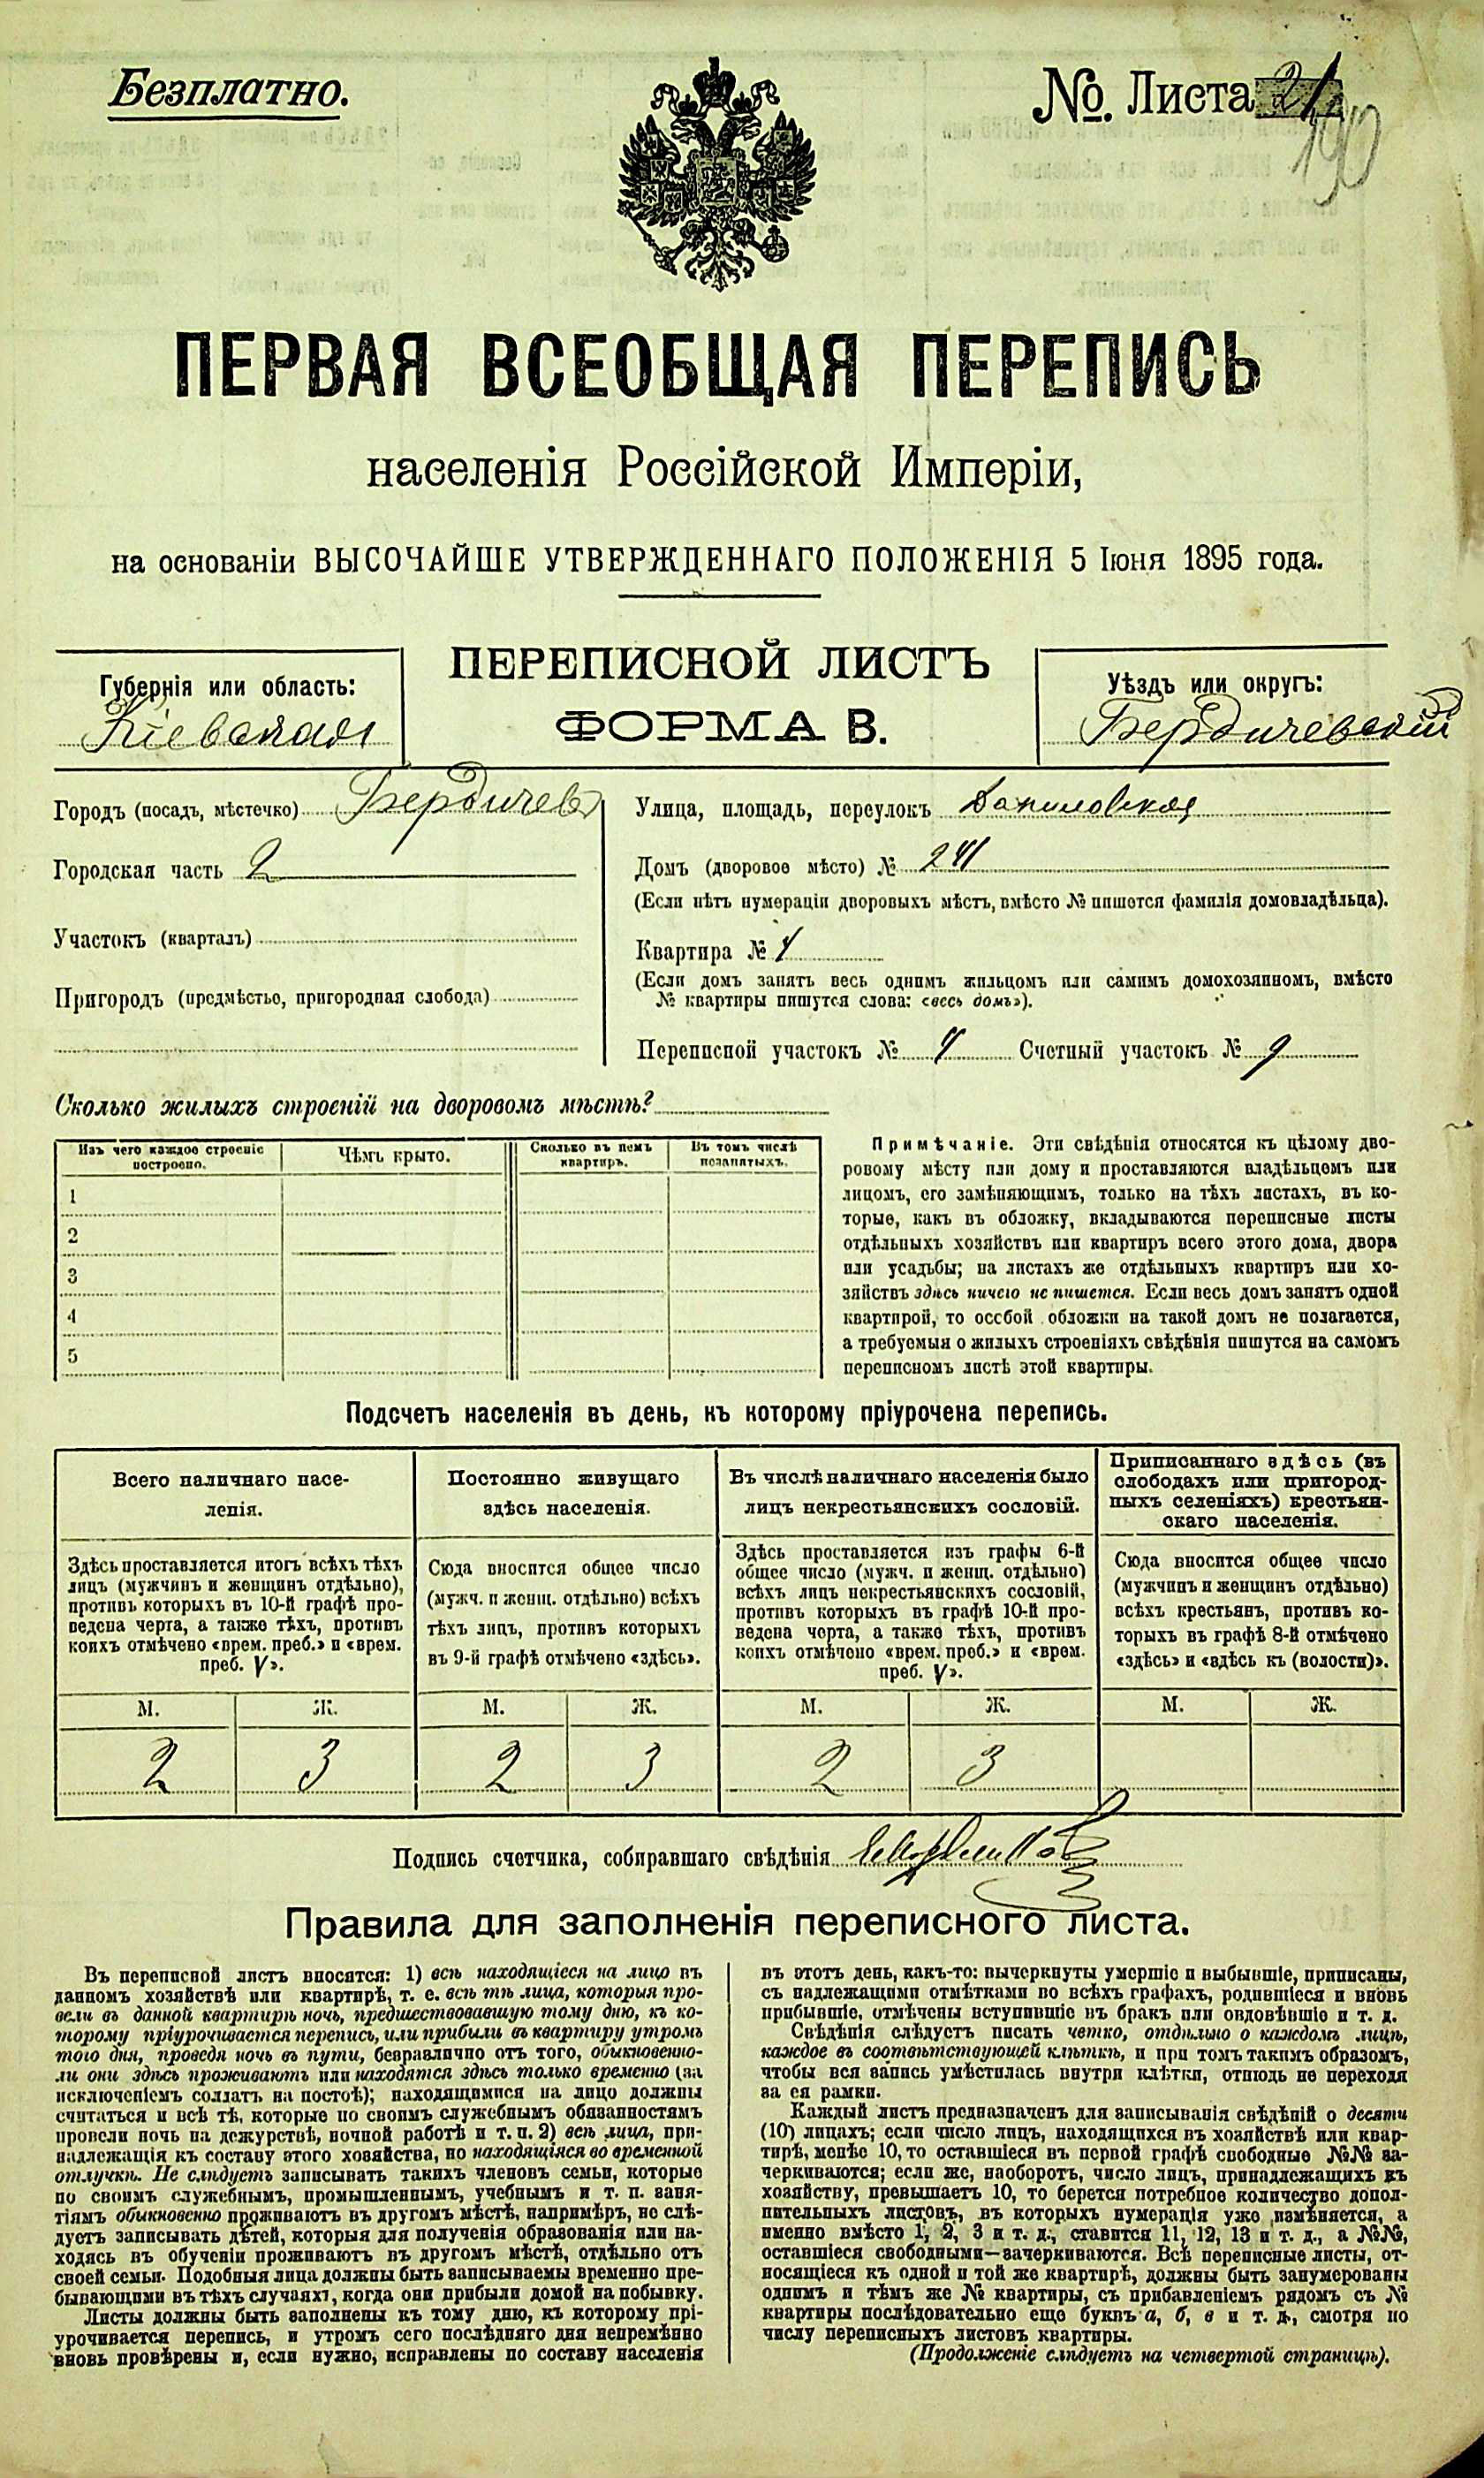 Безплатно.
№. Листа 21
190
ПЕРВАЯ ВСЕОБЩАЯ ПЕРЕПИСЬ
населенія Россійской Имперіи,
на основаніи ВЫСОЧАЙШЕ УТВЕРЖДЕННАГО ПОЛОЖЕНІЯ 5 Іюня 1895 года.
ПЕРЕПИСНОЙ ЛИСТЪ
ФОРМА В.
Губернія или область:
Кіевская
Уѣздъ или округъ:
Бердичевскій
Городъ (посадъ, мѣстечко) Бердичевъ
Городская часть 2
Участокъ (кварталъ)
Пригородъ (предмѣстье, пригородная слобода)
Улица, площадь, переулокъ
Домъ (дворовое мѣсто) № 241
(Если нѣтъ нумераціи дворовыхъ мѣстъ, вмѣсто № пишется фамилія домовладѣльца).
Квартира №
(Если домъ занятъ весь однимъ жильцомъ или самимъ домохозяиномъ, вмѣсто
№ квартиры пишутся слова: «весь домъ»).
Переписной участокъ № Счетный участокъ № 9
Сколько жилыхъ строеній на дворовомъ мѣстѣ?
Изъ чего каждое строеніе
построено.
Чѣмъ крыто.
Сколько въ немъ
квартиръ.
Въ томъ числѣ
незанятыхъ.
1
2
3
4
5
Примѣчаніе. Эти свѣдѣнія относятся къ цѣлому дво-
ровому мѣсту или дому и проставляются владѣльцемъ или
лицомъ, его замѣняющимъ, только на тѣхъ листахъ, въ ко-
торые, какъ въ обложку, вкладываются переписные листы
отдѣльныхъ хозяйствъ или квартиръ всего этого дома, двора
или усадьбы; на листахъ же отдѣльныхъ квартиръ или хо-
зяйствъ здѣсь ничего не пишется. Если весь домъ занятъ одной
квартирой, то особой обложки на такой домъ не полагается,
а требуемыя о жилыхъ строеніяхъ свѣдѣнія пишутся на самомъ
переписномъ листѣ этой квартиры.
Подсчетъ населенія въ день, къ которому пріурочена перепись.
Всего наличнаго насе-
ленія.
Здѣсь проставляется итогъ всѣхъ тѣхъ
лицъ (мужчинъ и женщинъ отдѣльно),
противъ которыхъ въ 10-й графѣ про-
ведена черта, а также тѣхъ, противъ
коихъ отмѣчено «врем. преб.» и «врем.
преб. V».
М. Ж.
2 3
Постоянно живущаго
здѣсь населенія.
Сюда вносится общее число
(мужч. и женщ. отдѣльно) всѣхъ
тѣхъ лицъ, противъ которыхъ
въ 9-й графѣ отмѣчено «здѣсь».
М. Ж.
2 3
Въ числѣ наличнаго населенія было
лицъ некрестьянскихъ сословій.
Здѣсь проставляется изъ графы 6-й
общее число (мужч. и женщ. отдѣльно)
всѣхъ лицъ некрестьянскихъ сословій,
противъ которыхъ въ графѣ 10-й про-
ведена черта, а также тѣхъ, противъ
коихъ отмѣчено «врем. преб.» и «врем.
преб. V».
М. Ж.
2 3
Приписаннаго здѣсь (въ
слободахъ или пригород-
ныхъ селеніяхъ) крестьян-
скаго населенія.
Сюда вносится общее число
(мужчинъ и женщинъ отдѣльно)
всѣхъ крестьянъ, противъ ко-
торыхъ въ графѣ 8-й отмѣчено
«здѣсь» и «здѣсь къ (волости)».
М. Ж.
Подпись счетчика, собиравшаго свѣдѣнія
Правила для заполненія переписного листа.
Въ переписной листъ вносятся: 1) всѣ находящіеся на лицо въ
данномъ хозяйствѣ или квартирѣ, т. е. всѣ тѣ лица, которыя про-
вели въ данной квартирѣ ночь, предшествовавшую тому дню, къ ко-
торому пріурочивается перепись, или прибыли въ квартиру утромъ
того дня, проведя ночь въ пути, безразлично отъ того, обыкновенно-
ли они здѣсь проживаютъ или находятся здѣсь только временно (за
исключеніемъ солдатъ на постоѣ); находящимися на лицо должны
считаться и всѣ тѣ, которые по своимъ служебнымъ обязанностямъ
провели ночь на дежурствѣ, ночной работѣ и т. п. 2) всѣ лица, при-
надлежащія къ составу этого хозяйства, но находящіяся во временной
отлучкѣ. Не слѣдуетъ записывать такихъ членовъ семьи, которые
по своимъ служебнымъ, промышленнымъ, учебнымъ и т. п. заня-
тіямъ обыкновенно проживаютъ въ другомъ мѣстѣ, напримѣръ, не слѣ-
дуетъ записывать дѣтей, которыя для полученія образованія или на-
ходясь въ обученіи проживаютъ въ другомъ мѣстѣ, отдѣльно отъ
своей семьи. Подобныя лица должны быть записываемы временно пре-
бывающими въ тѣхъ случаяхъ, когда они прибыли домой на побывку.
Листы должны быть заполнены къ тому дню, къ которому прі-
урочивается перепись, и утромъ сего послѣдняго дня непремѣнно
вновь провѣрены и, если нужно, исправлены по составу населенія
въ этотъ день, какъ-то: вычеркнуты умершіе и выбывшіе, приписаны,
съ надлежащими отмѣтками во всѣхъ графахъ, родившіеся и вновь
прибывшіе, отмѣчены вступившіе въ бракъ или овдовѣвшіе и т. д.
Свѣдѣнія слѣдуетъ писать четко, отдѣльно о каждомъ лицѣ,
каждое въ соотвѣтствующей клѣткѣ, и при томъ такимъ образомъ,
чтобы вся запись умѣстилась внутри клѣтки, отнюдь не переходя
за ея рамки.
Каждый листъ предназначенъ для записыванія свѣдѣній о десяти
(10) лицахъ; если число лицъ, находящихся въ хозяйствѣ или квар-
тирѣ, менѣе 10, то оставшіеся въ первой графѣ свободные №№ за-
черкиваются; если же, наоборотъ, число лицъ, принадлежащихъ къ
хозяйству, превышаетъ 10, то берется потребное количество допол-
нительныхъ листовъ, въ которыхъ нумерація уже измѣняется, а
именно вмѣсто 1, 2, 3 и т. д., ставится 11, 12, 13 и т. д., а №№,
оставшіеся свободными—зачеркиваются. Всѣ переписные листы, от-
носящіеся къ одной и той же квартирѣ, должны быть занумерованы
однимъ и тѣмъ же № квартиры, съ прибавленіемъ рядомъ съ №
квартиры послѣдовательно еще буквъ а, б, в и т. д., смотря по
числу переписныхъ листовъ квартиры.
(Продолженіе слѣдуетъ на четвертой страницѣ).